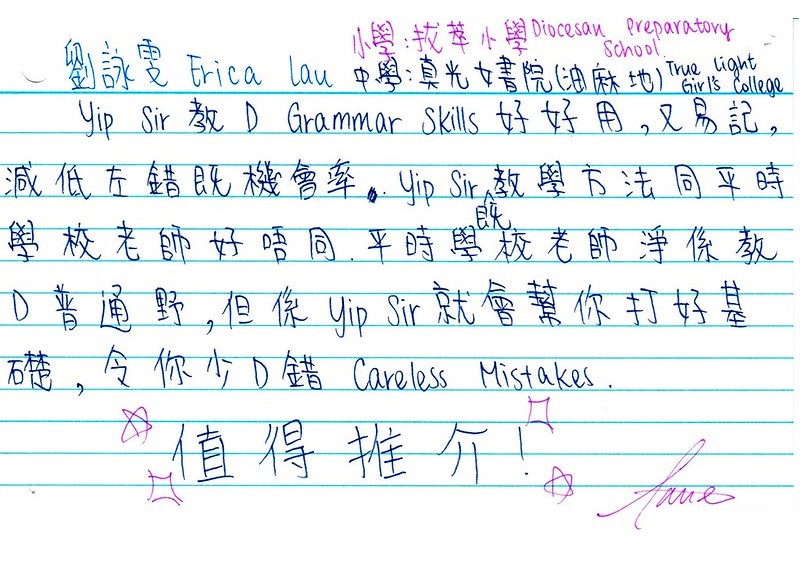 小學:拔萃小學 Diocesan Preparatory School
劉詠雯 Erica Lau 中學:真光女書院(油麻地) True Light Girl's College
Yip Sir 教 D Grammar Skills 好好用,又易記,
減低左錯既機會率. Yip Sir 既教學方法同平時
學校老師好唔同.平時學校老師淨係教
D 普通野,但係 Yip Sir 就會幫你打好基
礎,令你少 D 錯 Careless Mistakes.
值得推介!